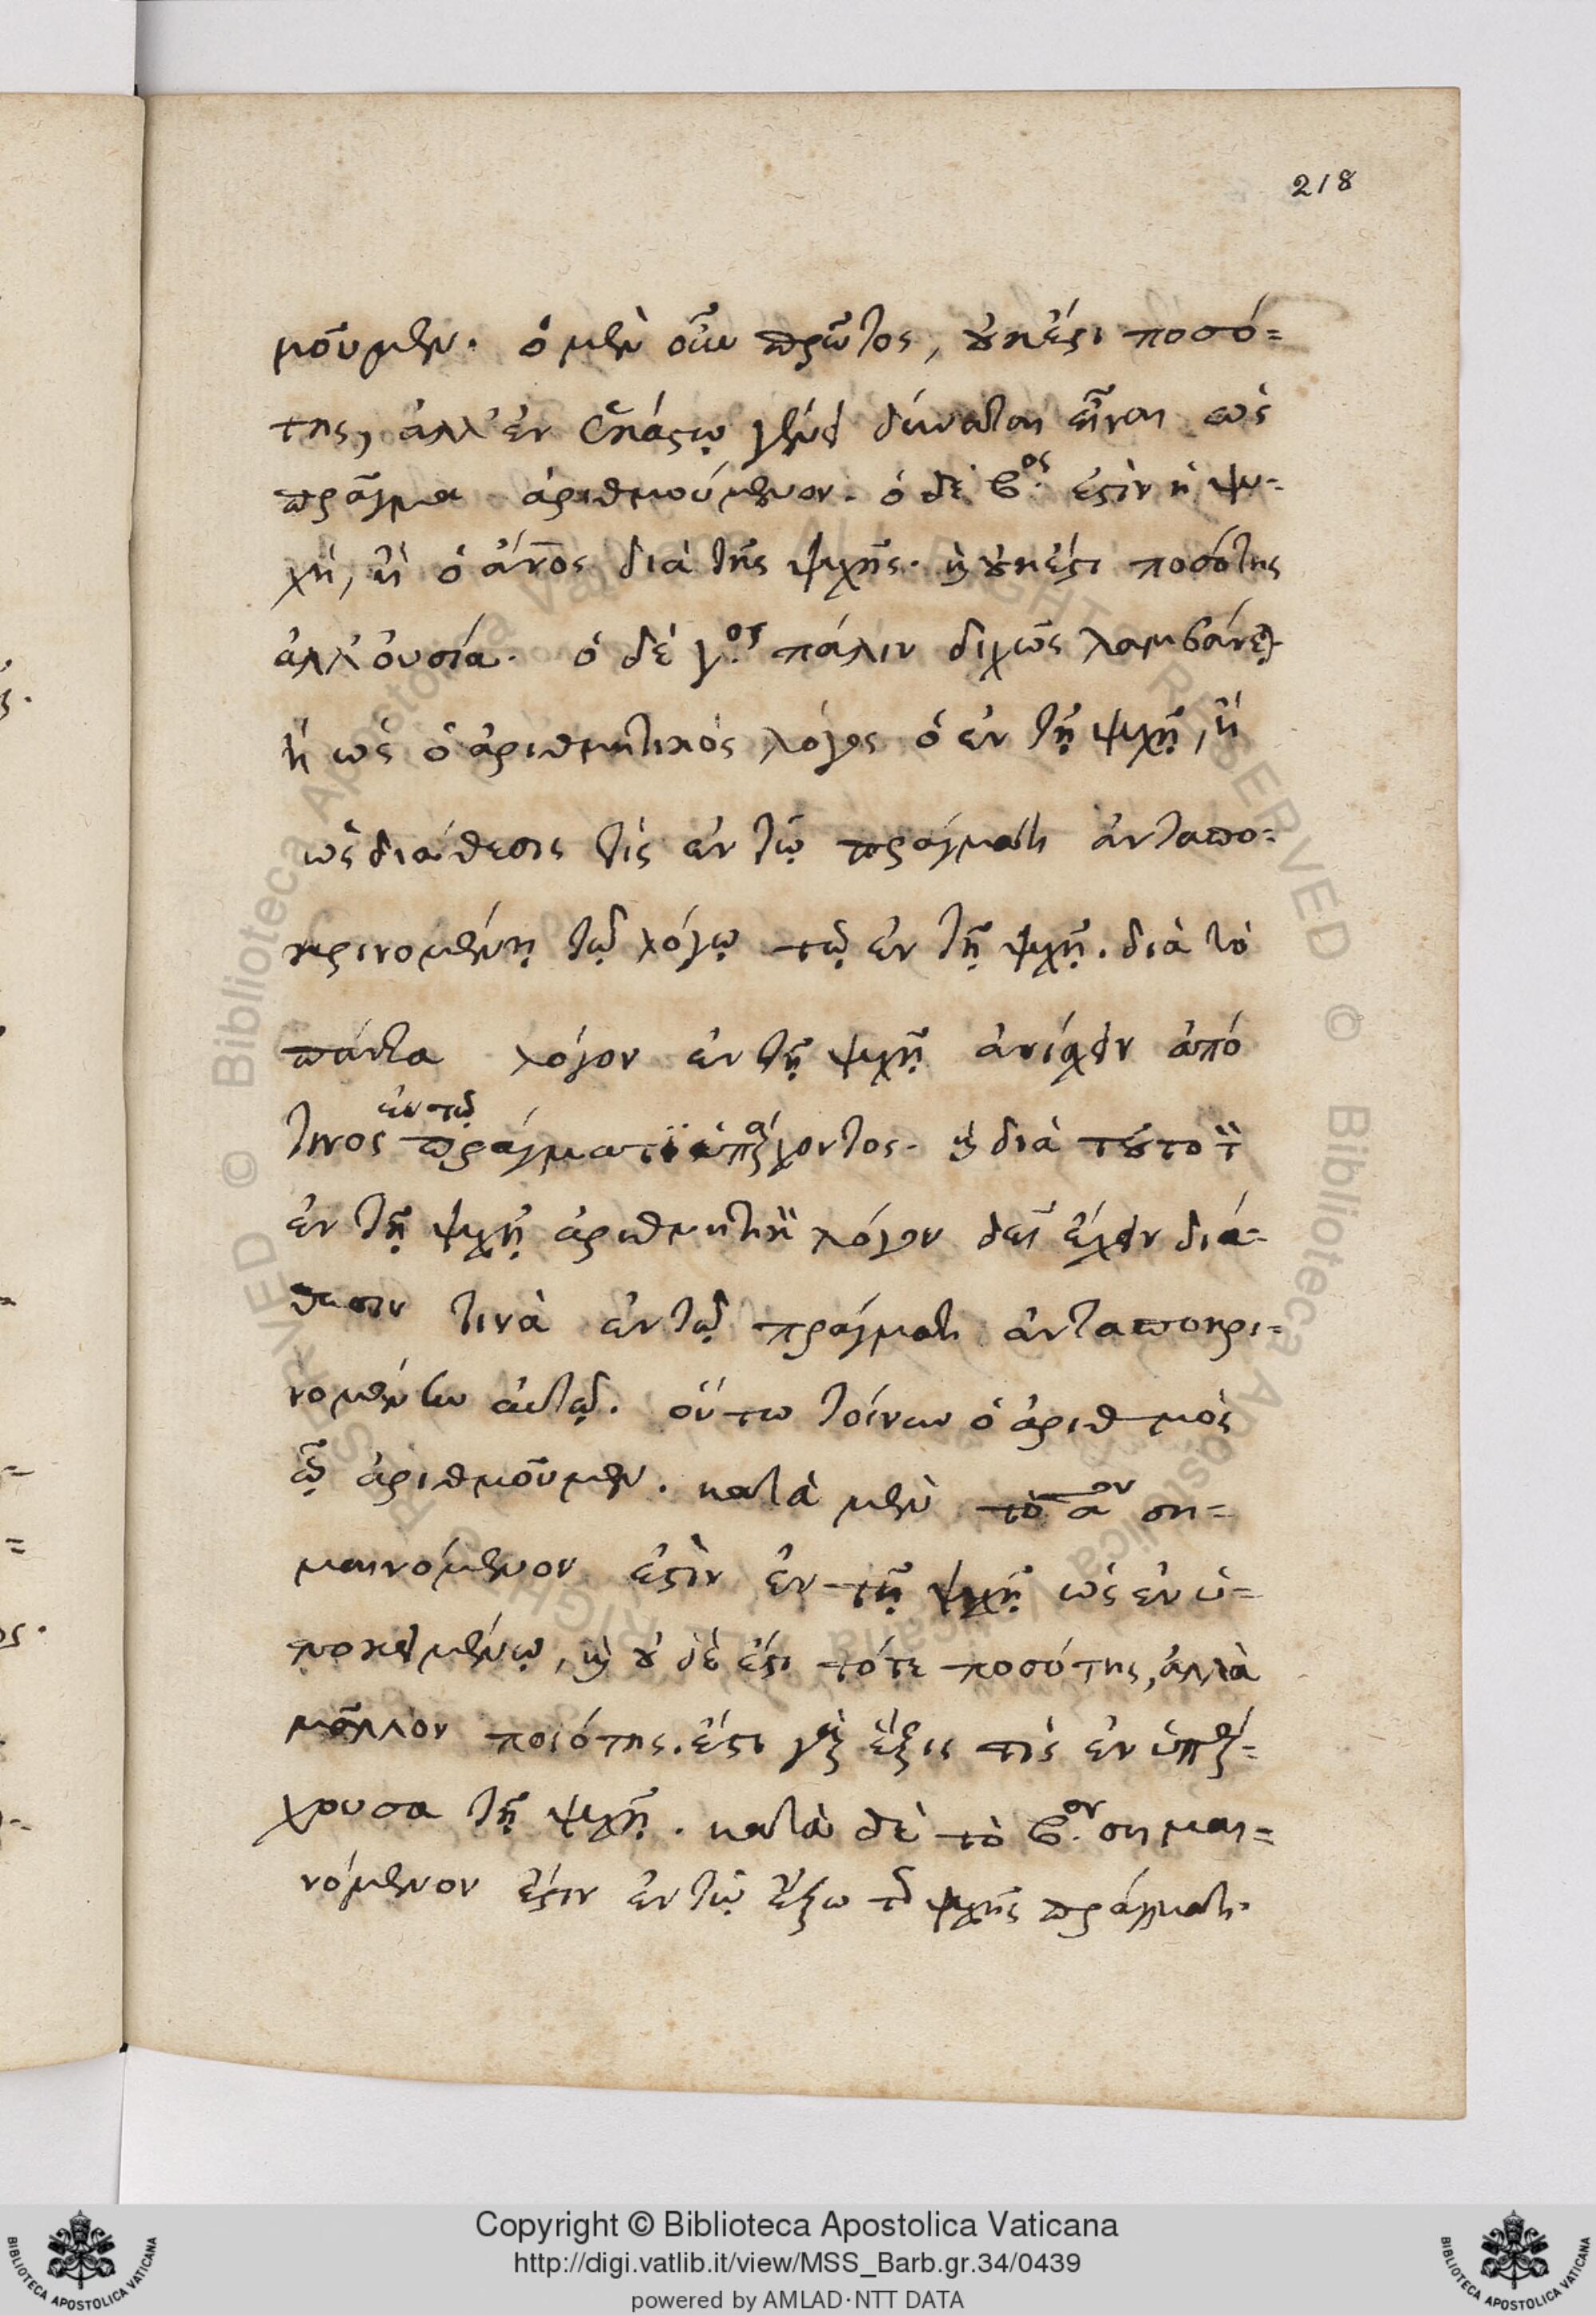 218
μοῦμεν. ὁ μὲν οὖν πρῶτος, οὐκ ἔστι ποσό=
της, ἀλλ' ἐν ἑκάστῳ γένει δύναται εἶναι ὡς
πρᾶγμα ἀριθμούμενον. ὁ δὲ β.ος ἐστὶν ἡ ψυ-
χὴ, ἢ ὁ ἄνος διὰ τῆς ψυχῆς. καὶ οὐκ ἔστι ποσότης
ἀλλ' οὐσία. ὁ δὲ γ.ος πάλιν διχῶς λαμβάνεται
ἢ ὡς ὁ ἀριθμητικὸς λόγος ὁ ἐν τῇ ψυχῇ, ἢ
ὡς διάθεσις τὶς ἐν τῷ πράγματι ἀνταπο-
κρινομένη τῷ λόγῳ τῷ ἐν τῇ ψυχῇ. διὰ τὸ
πάντα λόγον ἐν τῇ ψυχῇ ἀνίσχειν ἀπό
τινος ἐν τῷ πράγματι ὑπάρχοντος. καὶ διὰ τοῦτο τὸν
ἐν τῇ ψυχῇ ἀριθμητικὸν λόγον δεῖ ἔχειν διά-
θεσιν τινὰ ἐν τῷ πράγματι ἀνταποκρι-
νομένην αὐτῷ. οὕτω τοίνυν ὁ ἀριθμὸς
ᾧ ἀριθμοῦμεν. κατὰ μὲν τὸ αον ση=
μαινόμενον ἐστὶν ἐν τῇ ψυχῇ ὡς ἐν ὑ-
ποκειμένῳ, καὶ οὐδέ ἐστι τότε ποσότης, ἀλλὰ
μᾶλλον ποιότης. ἔστι γὰρ ἕξις τὶς ἐν ὑπάρ=
χουσα τῇ ψυχῇ. κατὰ δὲ τὸ β.ον σημαι=
νόμενον ἔστιν ἐν τῷ ἔξω τῆς ψυχῆς πράγματι.
Copyright © Biblioteca Apostolica Vaticana
http://digi.vatlib.it/view/MSS_Barb.gr.34/0439
powered by AMLAD·NTT DATA